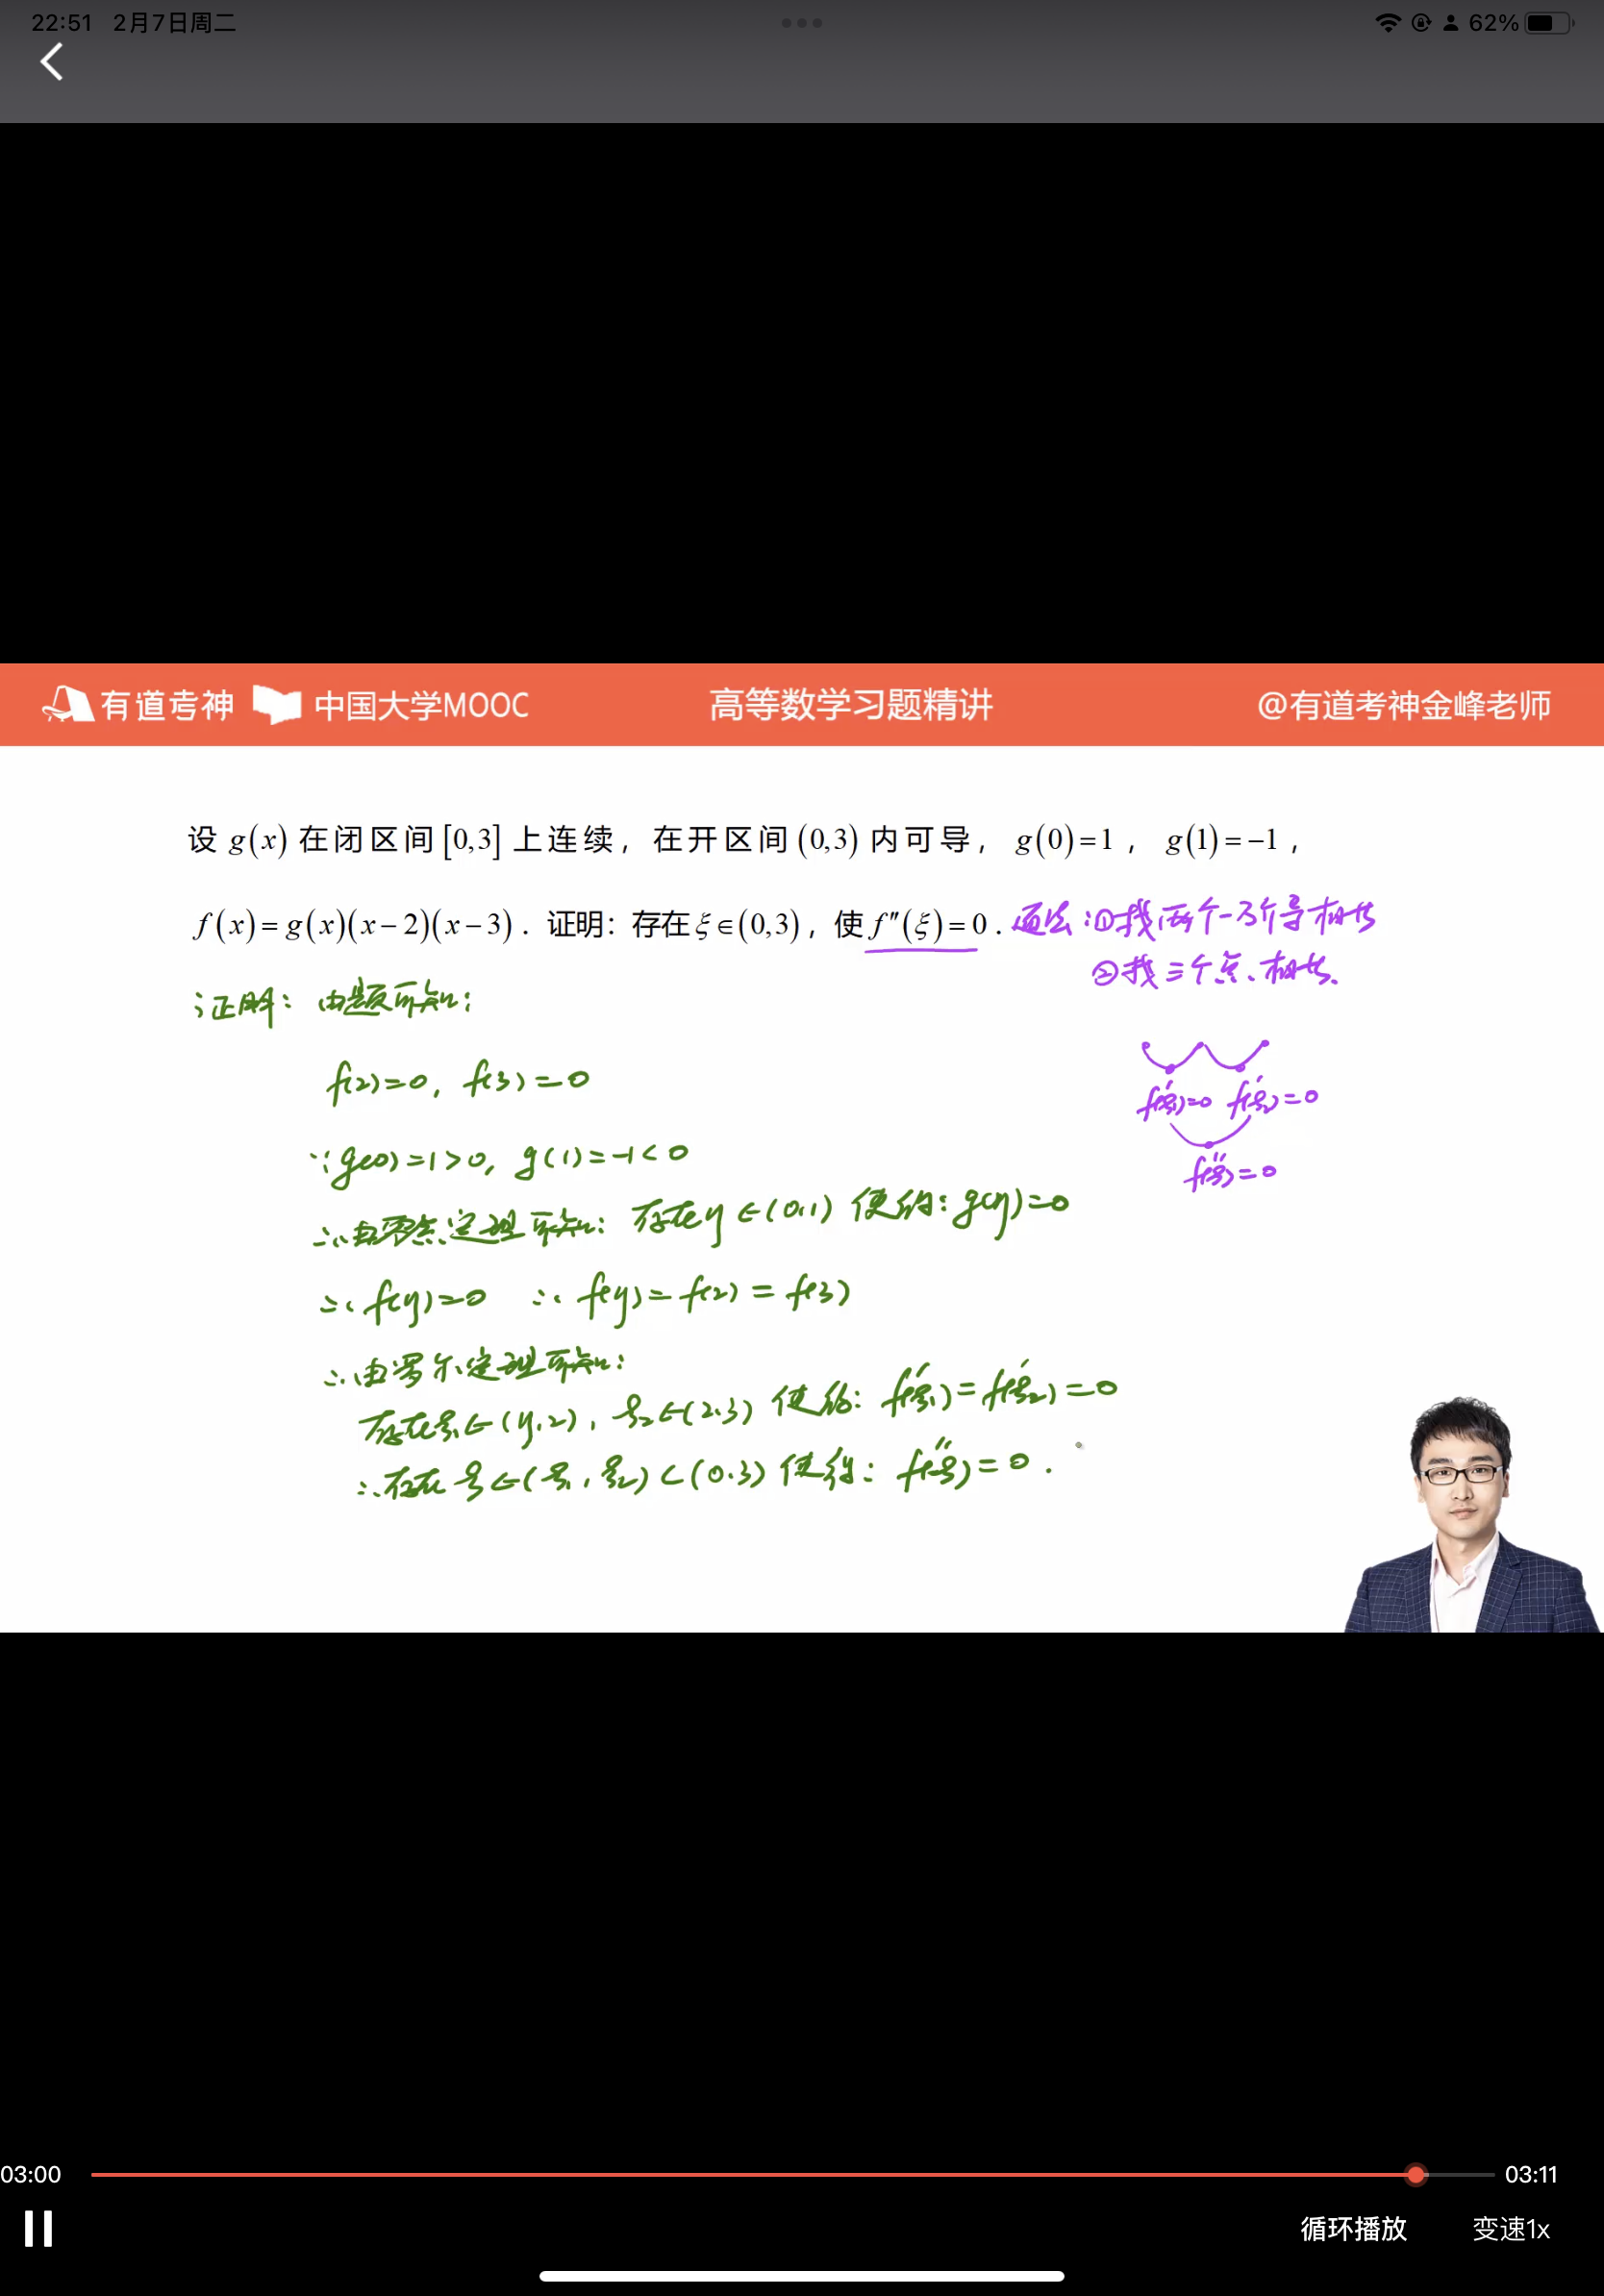 22:51 2月7日周二
62%
有道考神 中国大学MOOC 高等数学习题精讲 @有道考神金峰老师
设 g(x) 在闭区间[0,3] 上连续，在开区间(0,3) 内可导， g(0)=1， g(1)=−1，
f(x)=g(x)(x−2)(x−3)．证明：存在ξ∈(0,3)，使f″(ξ)=0．
通法：①找两个一阶导相等
②找三个点相等.
证明：由题可知：
f(2)=0, f(3)=0
f′(ξ₁)=0 f′(ξ₂)=0
∵g(0)=1>0, g(1)=-1<0
f″(ξ)=0
∴由零点定理可知：存在η∈(0,1) 使得：g(η)=0
∴f(η)=0 ∴f(η)=f(2)=f(3)
∴由罗尔定理可知：
存在ξ₁∈(η,2), ξ₂∈(2,3) 使得：f′(ξ₁)=f′(ξ₂)=0
∴存在ξ∈(ξ₁,ξ₂)⊂(0,3) 使得：f″(ξ)=0.
03:00 03:11
循环播放 变速1x